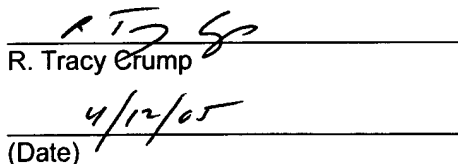 R. Tracy Crump
4/12/05
(Date)